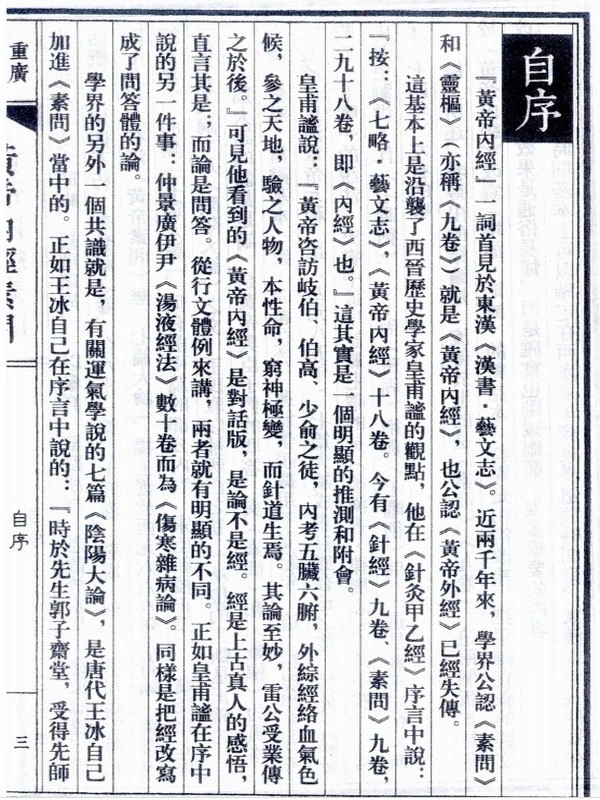 自序
『黃帝內經』一詞首見於東漢《漢書·藝文志》。近兩千年來，學界公認《素問》
和《靈樞》（亦稱《九卷》）就是《黃帝內經》，也公認《黃帝外經》已經失傳。
這基本上是沿襲了西晉歷史學家皇甫謐的觀點，他在《針灸甲乙經》序言中說：
『按：《七略·藝文志》，《黃帝內經》十八卷。今有《針經》九卷、《素問》九卷，
二九十八卷，即《內經》也。』這其實是一個明顯的推測和附會。
皇甫謐說：『黃帝咨訪岐伯、伯高、少俞之徒，內考五臟六腑，外綜經絡血氣色
候，參之天地，驗之人物，本性命，窮神極變，而針道生焉。其論至妙，雷公受業傳
之於後。』可見他看到的《黃帝內經》是對話版，是論不是經。經是上古真人的感悟，
直言其是；而論是問答。從行文體例來講，兩者就有明顯的不同。正如皇甫謐在序中
說的另一件事：仲景廣伊尹《湯液經法》數十卷而為《傷寒雜病論》。同樣是把經改寫
成了問答體的論。
學界的另外一個共識就是，有關運氣學說的七篇《陰陽大論》，是唐代王冰自己
加進《素問》當中的。正如王冰自己在序言中說的：『時於先生郭子齋堂，受得先師
重廣
黃帝內經素問
自序
三